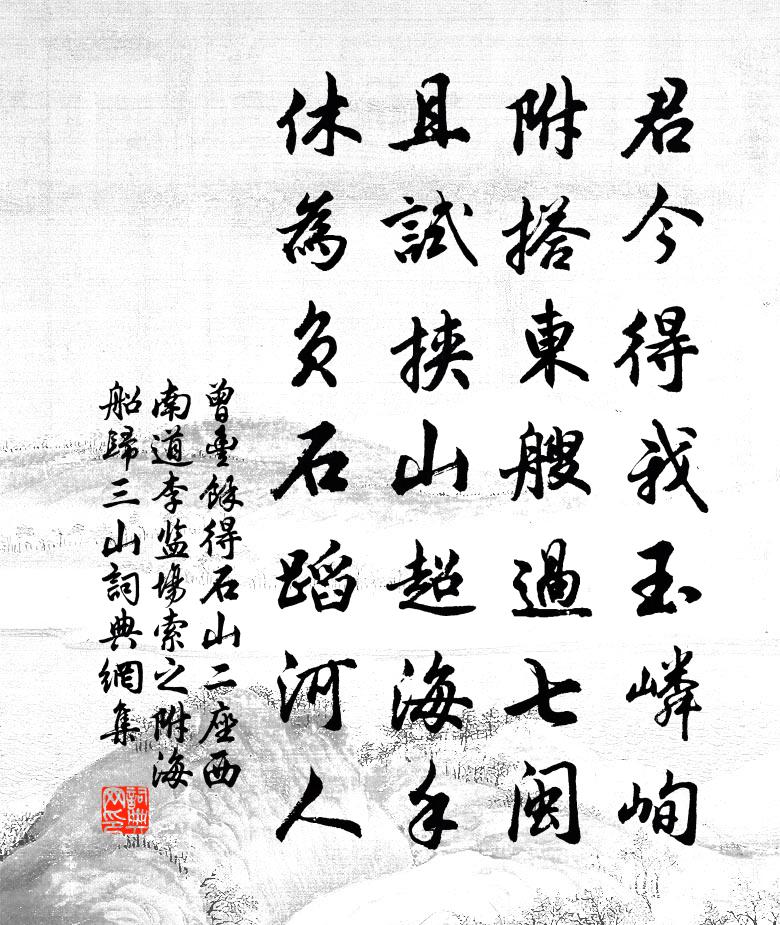 君今得我玉嶙峋
附搭東艘過七閩
且試挾山超海手
休為負石蹈河人
曾豐餘得石山二座西
南道李监場索之附海
船歸三山詞典網集